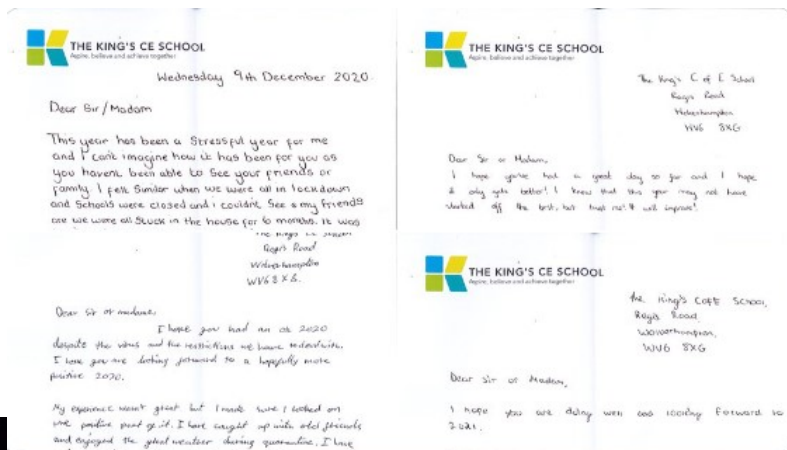 THE KING'S CE SCHOOL
Aspire, believe and achieve together
Wednesday 9th December 2020.
Dear Sir/Madam
This year has been a Stressful year for me
and I can't imagine how it has been for you as
you havent been able to See your friends or
family. I felt Similar when we were all in lockdown
and Schools were closed and i couldnt See my friends
we were all Stuck in the house for 6 months. It was
Regis Road
Wolverhampton
WV6 8XG.
Dear Sir or madame,
I hope you had an ok 2020
despite the virus and the restrictions we have
I hope you are looking forward to a hopefully more
positive 2020.
My experience wasn't great but I made sure I looked on
the positive part of it. I have caught up with old friends
and enjoyed the great weather during quarantine. I have
THE KING'S CE SCHOOL
Aspire, believe and achieve together
The King's C of E School
Regis Road
Wolverhampton
WV6 8XG
Dear Sir or Madam,
I hope you've had a good day so far and I hope
it only gets better! I know that this year may not have
started off the best, but trust me! It will improve!
THE KING'S CE SCHOOL
Aspire, believe and achieve together
the King's CofE School,
Regis Road,
Wolverhampton,
WV6 8XG
Dear Sir or Madam,
I hope you are doing well and looking forward to
2021.